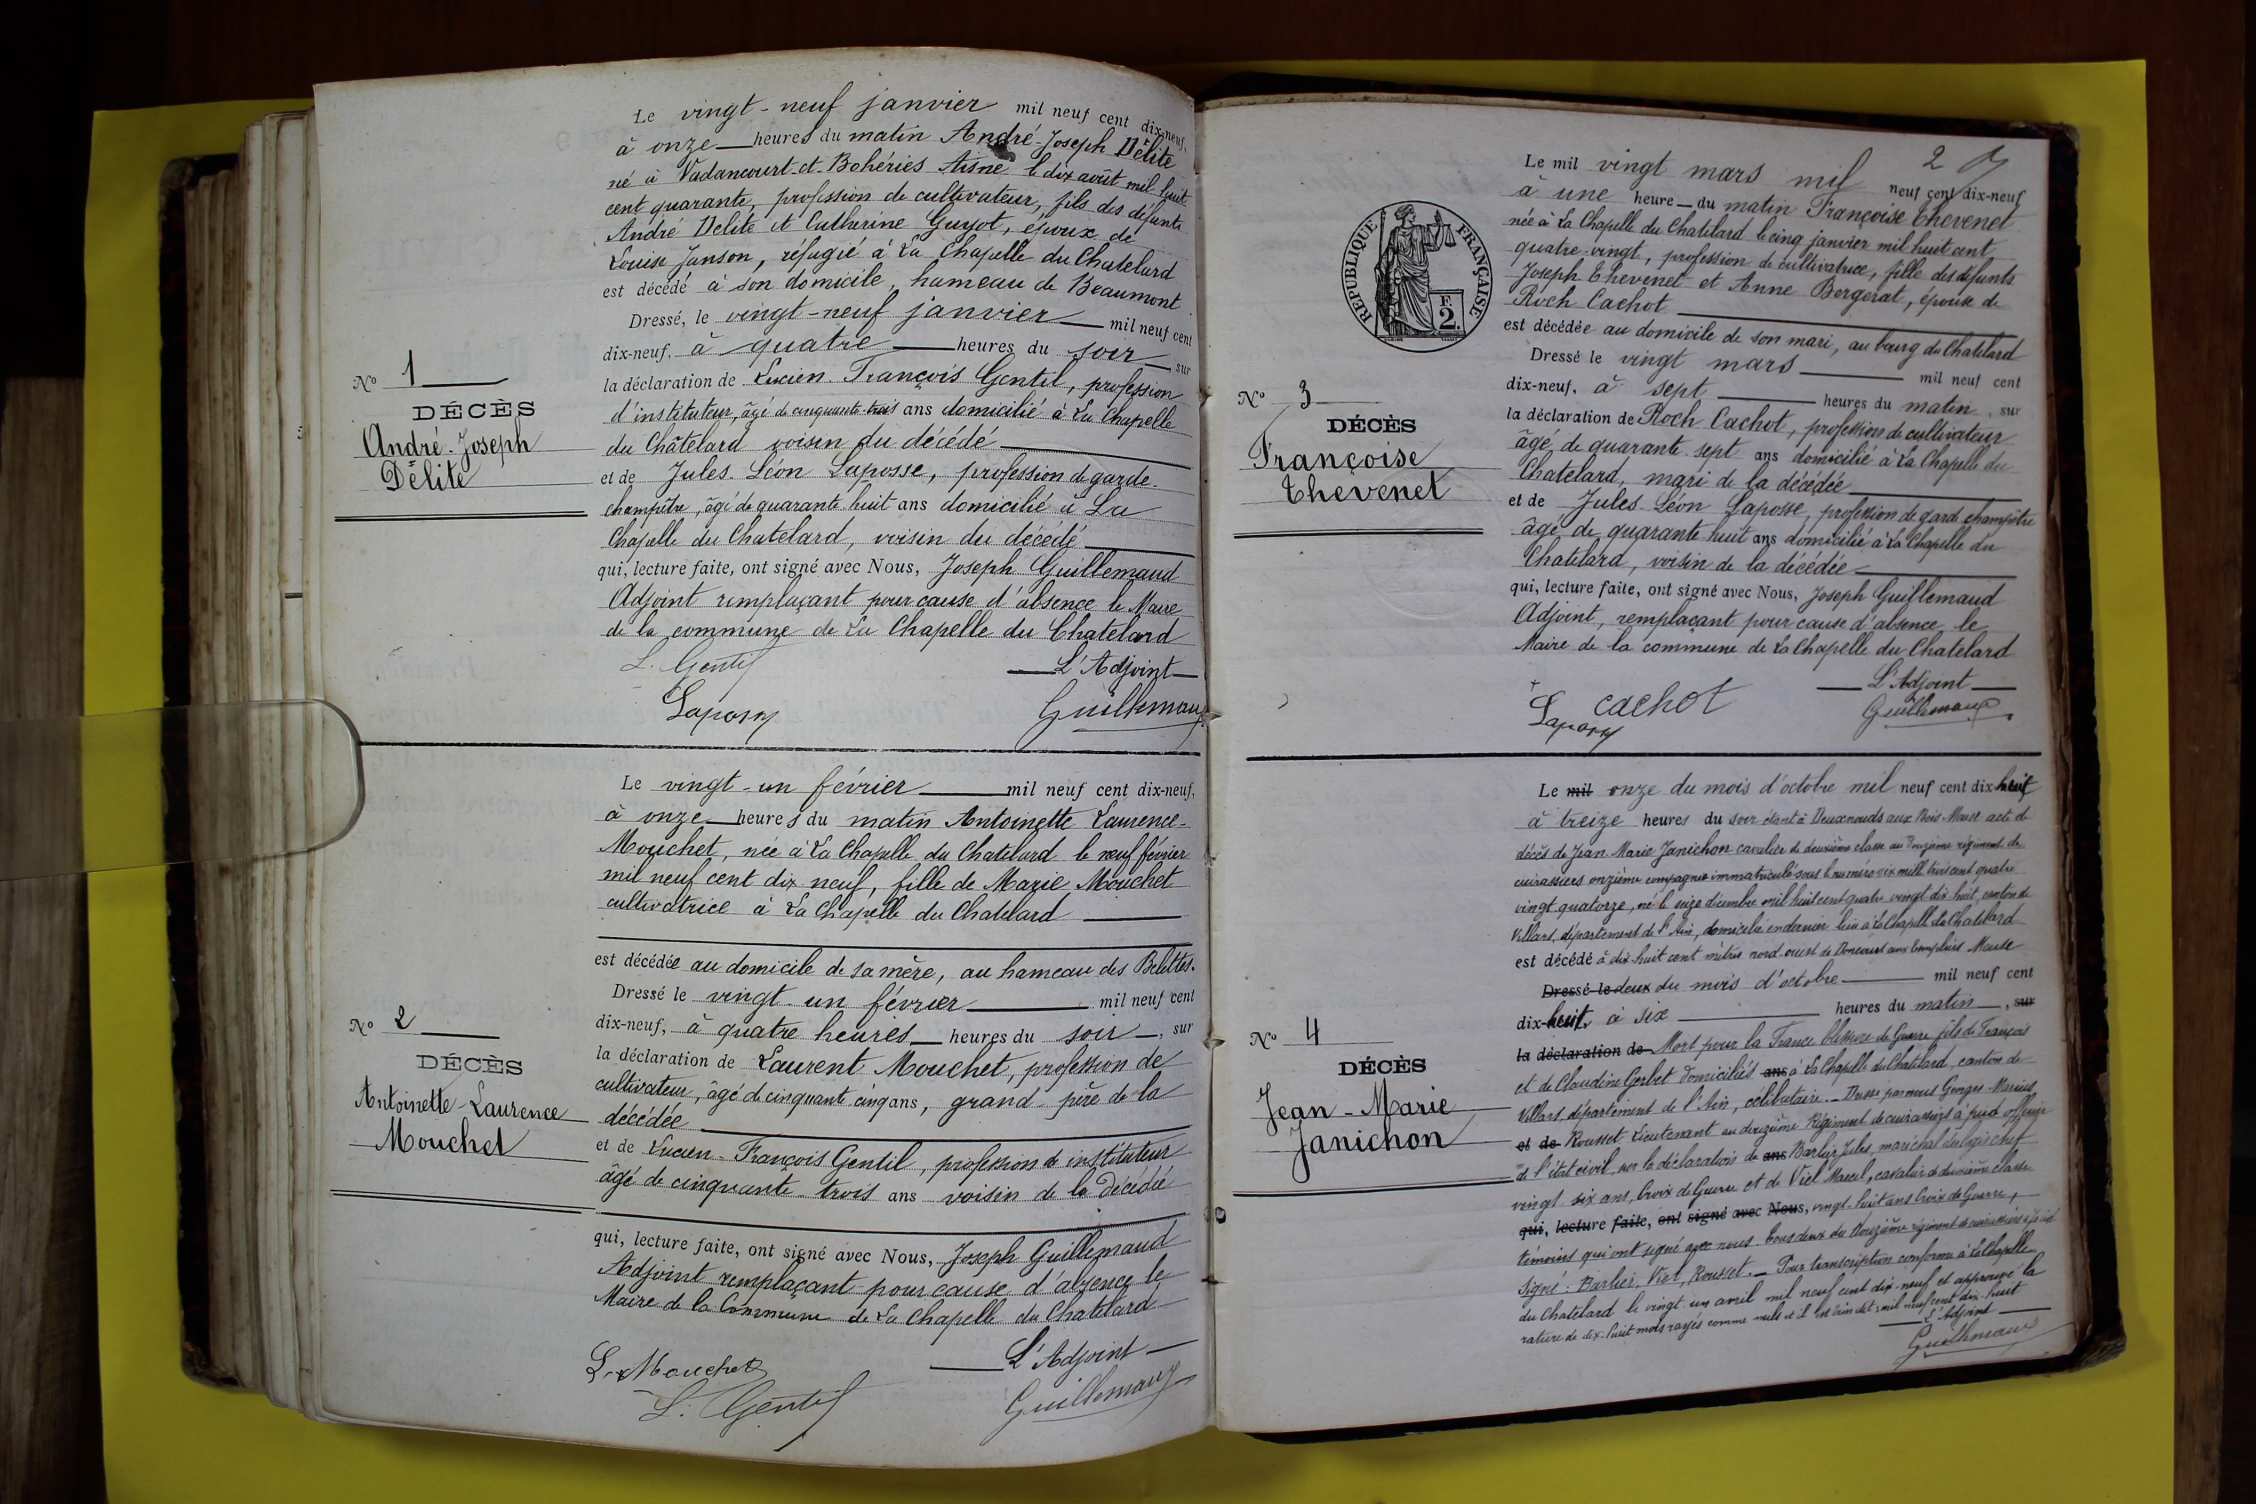 Le vingt-neuf janvier mil neuf cent dix-neuf,
à onze heures du matin André-Joseph Délite
né à Vadancourt-et-Bohéries Aisne le dix août mil huit
cent quarante, profession de cultivateur, fils des défunts
André Delite et Catherine Guyot, époux de
Louise Janson, réfugié à La Chapelle du Chatelard
est décédé à son domicile, hameau de Beaumont
Dressé, le vingt-neuf janvier mil neuf cent
dix-neuf, à quatre heures du soir, sur
la déclaration de Lucien François Gentil, profession
d'instituteur, âgé de cinquante-trois ans domicilié à La Chapelle
du Châtelard voisin du décédé
et de Jules Léon Laposse, profession de garde-
champêtre, âgé de quarante huit ans domicilié à La
Chapelle du Chatelard, voisin du décédé
qui, lecture faite, ont signé avec Nous, Joseph Guillemaud
Adjoint remplaçant pour cause d'absence le Maire
de la commune de La Chapelle du Chatelard
L. Gentil L'Adjoint
Laposse Guillemaud
N° 1
DÉCÈS
André-Joseph
Délite
Le vingt-un février mil neuf cent dix-neuf,
à onze heures du matin Antoinette Laurence-
Mouchet, née à La Chapelle du Chatelard le neuf février
mil neuf cent dix neuf, fille de Marie Mouchet
cultivatrice à La Chapelle du Chatelard
est décédée au domicile de sa mère, au hameau des Belettes.
Dressé le vingt-un février mil neuf cent
dix-neuf, à quatre heures heures du soir, sur
la déclaration de Laurent Mouchet, profession de
cultivateur, âgé de cinquante cinq ans, grand-père de la
décédée
et de Lucien-François Gentil, profession de instituteur
âgé de cinquante-trois ans voisin de la décédée
qui, lecture faite, ont signé avec Nous, Joseph Guillemaud
Adjoint remplaçant pour cause d'absence le
Maire de la Commune de La Chapelle du Chatelard
L. Mouchet L'Adjoint
L. Gentil Guillemaud
N° 2
DÉCÈS
Antoinette-Laurence
Mouchet
2
RÉPUBLIQUE FRANÇAISE
F.
2.
Le mil vingt mars mil neuf cent dix-neuf
à une heure du matin Françoise Thevenet
née à La Chapelle du Chatelard le cinq janvier mil huit cent
quatre-vingt, profession de cultivatrice, fille des défunts
Joseph Thevenet et Anne Bergerat, épouse de
Roch Cachot
est décédée au domicile de son mari, au bourg du Chatelard
Dressé le vingt mars mil neuf cent
dix-neuf, à sept heures du matin, sur
la déclaration de Roch Cachot, profession de cultivateur
âgé de quarante-sept ans domicilié à La Chapelle du
Chatelard, mari de la décédée
et de Jules Léon Laposse, profession de garde champêtre
âgé de quarante huit ans domicilié à La Chapelle du
Chatelard, voisin de la décédée
qui, lecture faite, ont signé avec Nous, Joseph Guillemaud
Adjoint, remplaçant pour cause d'absence le
Maire de la commune de La Chapelle du Chatelard
cachot L'Adjoint
Laposse Guillemaud
N° 3
DÉCÈS
Françoise
Thevenet
Le mil onze du mois d'octobre mil neuf cent dix huit
à treize heures du soir étant à Deuxnouds aux Bois-Meuse acte de
décès de Jean Marie Janichon cavalier de deuxième classe au douzième régiment de
cuirassiers onzième compagnie immatriculé sous le numéro six mille trois cent quatre
vingt quatorze, né le seize décembre mil huit cent quatre vingt dix huit, canton de
Villars, département de l'Ain, domicilié en dernier lieu à La Chapelle du Chatelard
est décédé à dix-huit cent mètres nord-ouest de Doncourt aux Templiers Meuse
Dressé le deux du mois d'octobre mil neuf cent
dix-huit, à six heures du matin, sur
la déclaration de Mort pour la France blessure de Guerre fils de François
et de Claudine Gerbet domiciliés ans à La Chapelle du Chatelard, canton de
Villars, département de l'Ain, célibataire. Dressé par nous Georges-Marius
et de Rousset Lieutenant au douzième Régiment de cuirassiers à pied officier
de l'état civil, sur la déclaration de ans Barlier Jules, maréchal des logis chef
vingt six ans, Croix de Guerre et de Viel Marcel, cavalier de deuxième classe
qui, lecture faite, ont signé avec Nous, vingt-huit ans Croix de Guerre,
témoins qui ont signé avec nous tous deux du douzième régiment de cuirassiers à pied
Signé: Barlier, Viel, Rousset. Pour transcription conforme à La Chapelle
du Chatelard le vingt un avril mil neuf cent dix-neuf et approuvé la
rature de dix-huit mots rayés comme nuls mil neuf cent dix-huit
L'Adjoint
Guillemaud
N° 4
DÉCÈS
Jean-Marie
Janichon